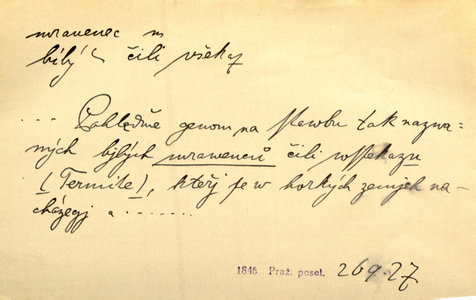 mravenec m
bílý čili všekaz
.... Pohleďme genom na stawbu tak nazwa-
ných bjlých mrawenců čili wssekazu
(Termite), kteřj se w horkých zemjch na-
cházegj a .......
1846 Praž. posel. 269.27